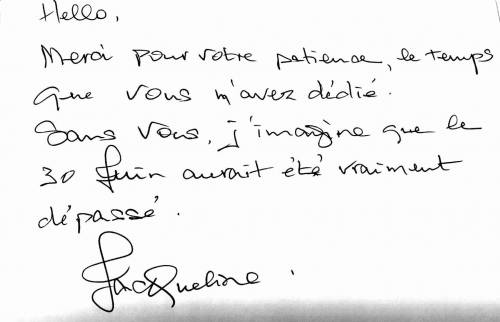 Hello,
Merci pour votre patience, le temps
que vous m'avez dédié.
Sans vous, j'imagine que le
30 Juin aurait été vraiment
dépassé.
Jacqueline.